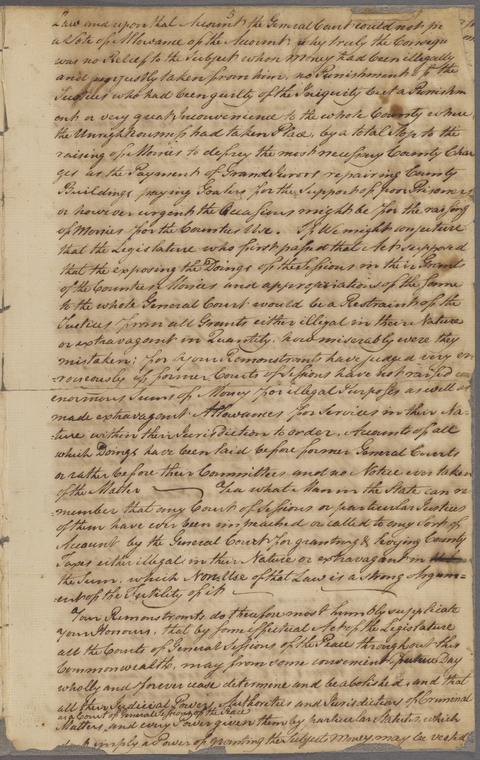 5
Law and upon that Account, the General Court could not pe
a Vote of Allowance of the Account; why truly the Consequ
was no Relief to the Subject whose money had been illegally
and unjustly taken from him, no Punishment of the
Justices who had been guilty of the Iniquity but a Punishm
ent or very great Inconvenience to the whole County where
the Unrighteousness had taken Place, by a total Stop to the
raising of Monies to defrey the most necessary County Char
ges as the Payment of Grand Jurors repairing County
Buildings paying Goalers for the Support of poor Prisoners
or however urgent the Occasions might be for the raising
of Monies for the Counties Use. If We might conjecture
that the Legislature who first passed that Act supposed
that the exposing the Doings of the Sessions in their Grants
of the Counties Monies and appropriations of the same
to the whole General Court would be a Restraint of the
Justices from all Grants either illegal in their Nature
or extravagant in Quantity, how miserably were they
mistaken; for your Remonstrants have judged very er
roneously if former Courts of Sessions have not raised
enormous Sums of Money for illegal Purposes as well as
made extravagant Allowances for Services in their Na-
ture within their Jurisdiction to order. Accounts of all
which Doings have been laid before former General Courts
or rather before their Committees and no Notice ever taken
of the Matter Yea what Man in the State can re
member that any Court of Sessions or particular Justices
of them have ever been impeached or called to any Sort of
Account by the General Court for granting & levying County
Taxes either illegal in their Nature or extravagant in
the Sum, which Non Use of that Law is a strong Argum-
ent of the Futility of it
Your Remonstrants do therefore most humbly supplicate
your Honours, that by some effectual Act of the Legislature
all the Courts of General Sessions of the Peace throughout this
Commonwealth, may from some convenient future Day
wholly and forever cease determine and be abolished, and that
all their Judicial Powers Authorities and Jurisdictions of Criminal
as a Court of General Sessions of the Peace
Matters, and every Power given them by particular Statutes, which
imply a Power of granting the Subjects Money may be vested